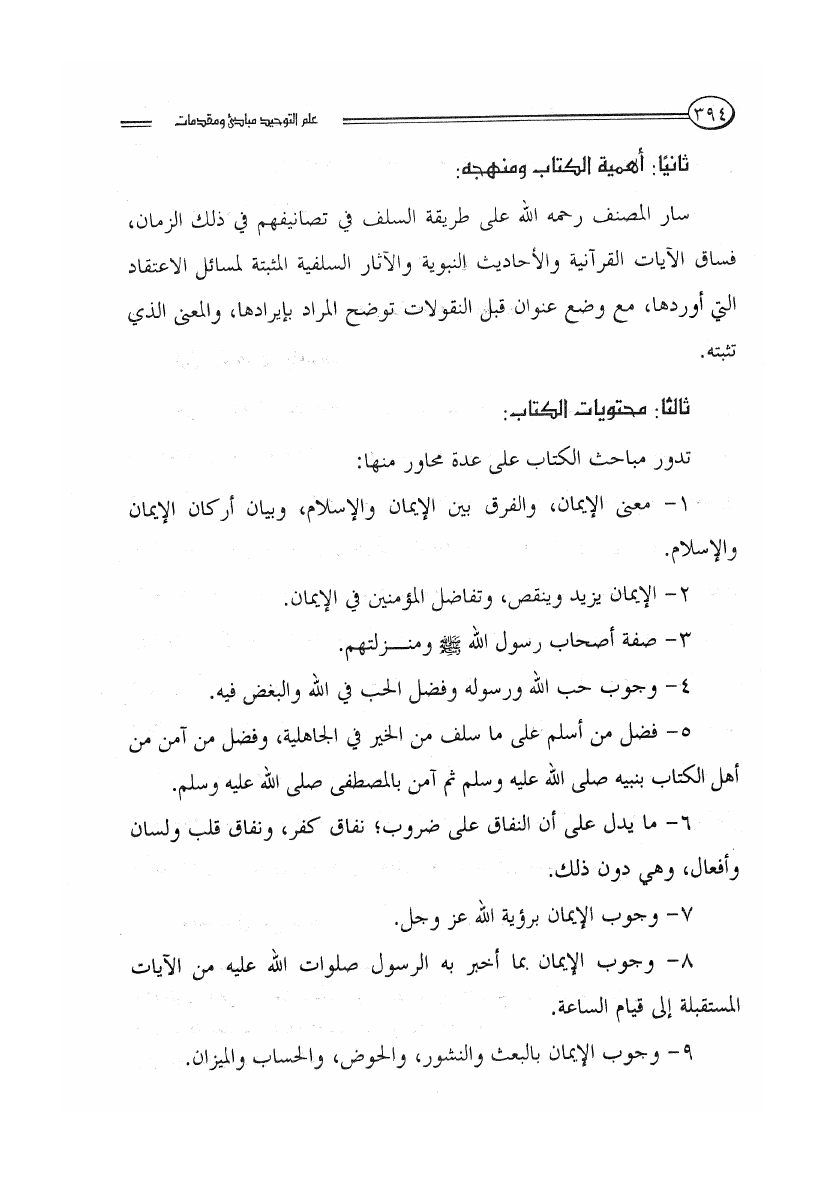 ٣٩٤
علم التوحيد مبادئ ومقدمات
ثانيًا: أهمية الكتاب ومنهجه:
سار المصنف رحمه الله على طريقة السلف في تصانيفهم في ذلك الزمان،
فساق الآيات القرآنية والأحاديث النبوية والآثار السلفية المثبتة لمسائل الاعتقاد
التي أوردها، مع وضع عنوان قبل النقولات توضح المراد بإيرادها، والمعنى الذي
تثبته.
ثالثًا: محتويات الكتاب:
تدور مباحث الكتاب على عدة محاور منها:
١- معنى الإيمان، والفرق بين الإيمان والإسلام، وبيان أركان الإيمان
والإسلام.
٢- الإيمان يزيد وينقص، وتفاضل المؤمنين في الإيمان.
٣- صفة أصحاب رسول الله ﷺ ومنـــزلتهم.
٤- وجوب حب الله ورسوله وفضل الحب في الله والبغض فيه.
٥- فضل من أسلم على ما سلف من الخير في الجاهلية، وفضل من آمن من
أهل الكتاب بنبيه صلى الله عليه وسلم ثم آمن بالمصطفى صلى الله عليه وسلم.
٦- ما يدل على أن النفاق على ضروب؛ نفاق كفر، ونفاق قلب ولسان
وأفعال، وهي دون ذلك.
٧- وجوب الإيمان برؤية الله عز وجل.
٨- وجوب الإيمان بما أخبر به الرسول صلوات الله عليه من الآيات
المستقبلة إلى قيام الساعة.
٩- وجوب الإيمان بالبعث والنشور، والحوض، والحساب والميزان.